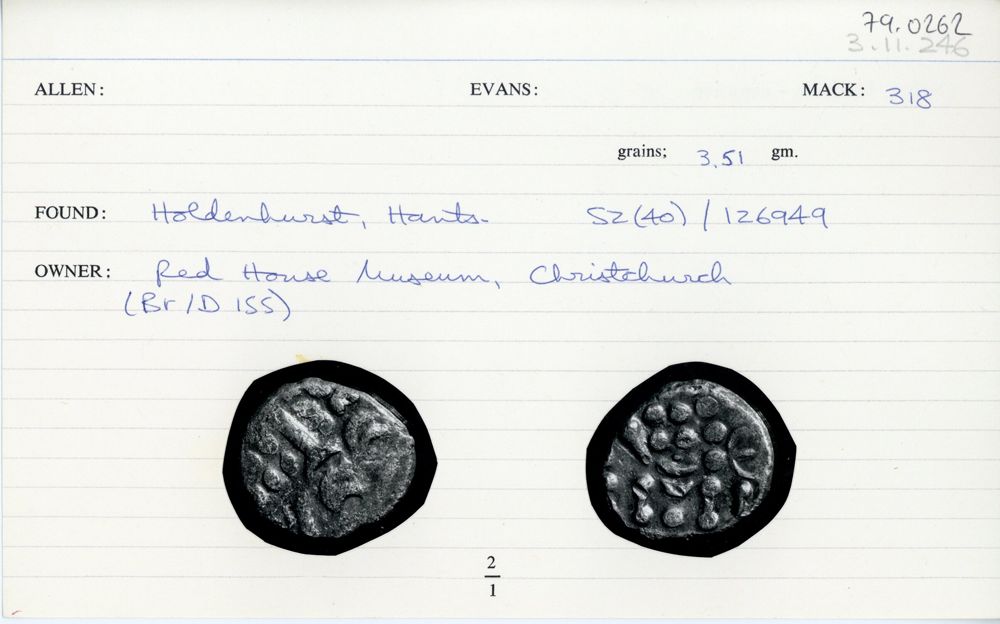 79.0262
3.11.246
ALLEN: EVANS: MACK: 318
grains; 3.51 gm.
FOUND: Holdenhurst, Hants. SZ(40) / 126949
OWNER: Red House Museum, Christchurch
(Br/D 155)
2
1